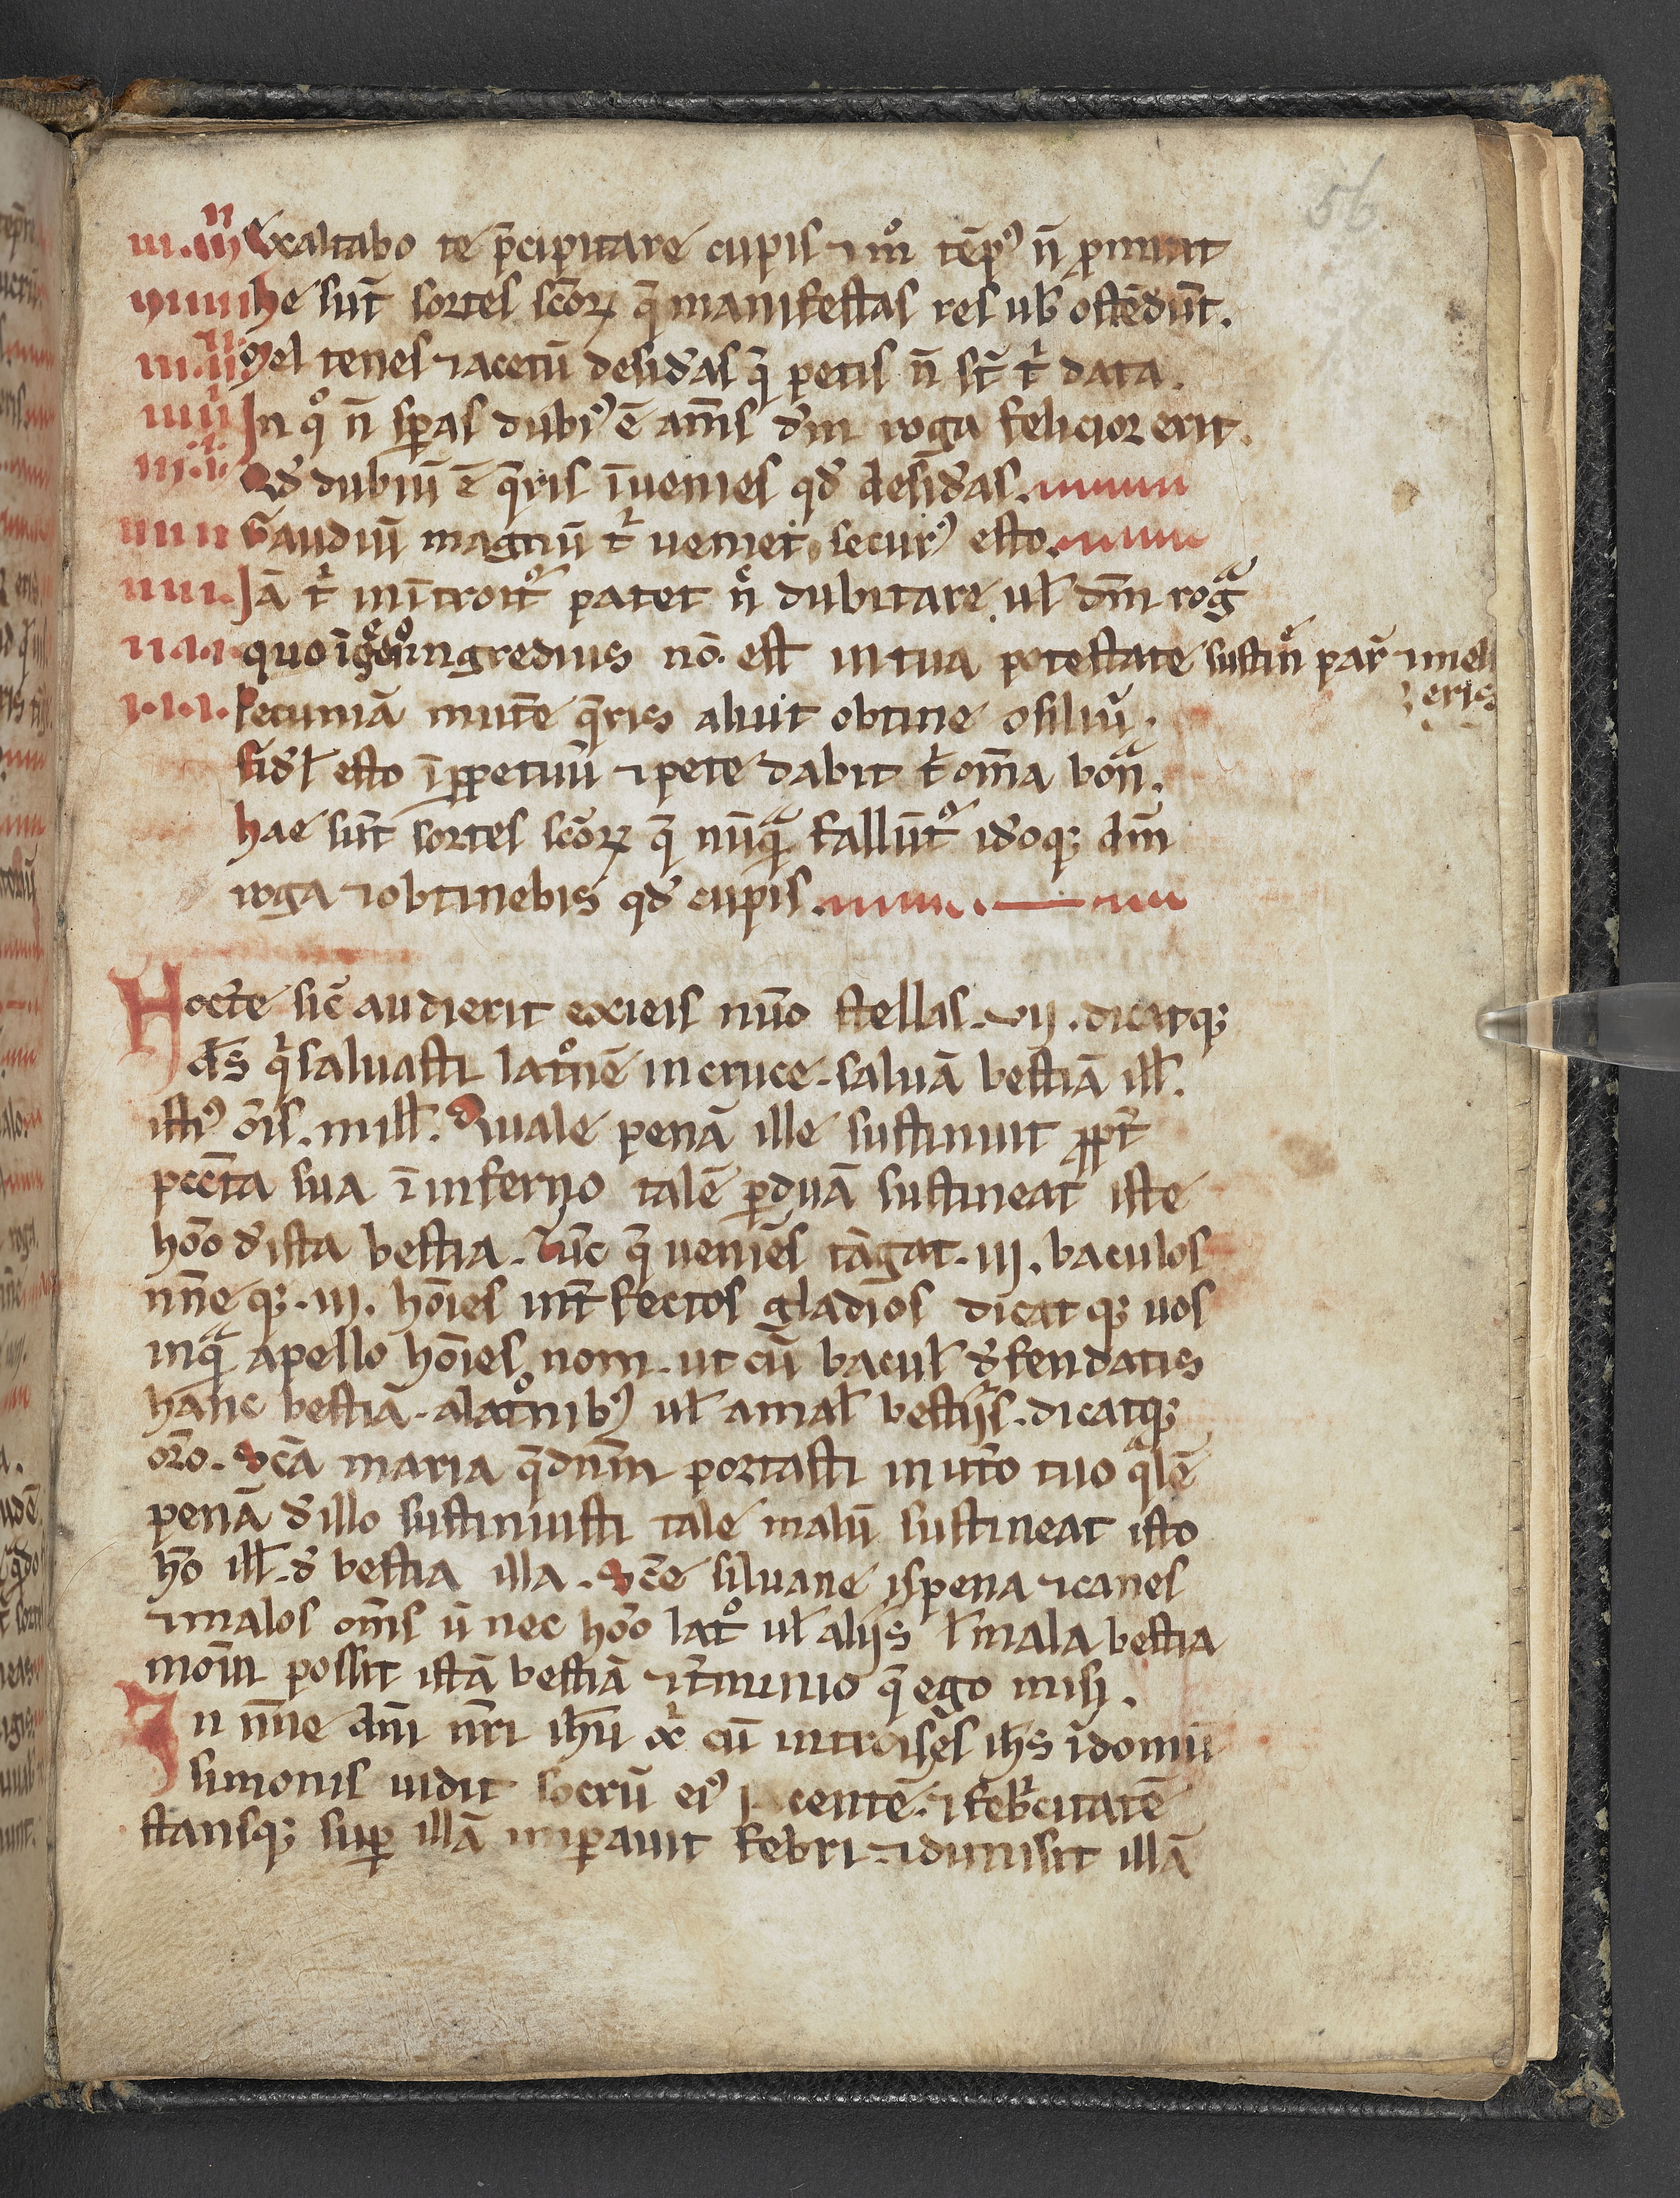 56.
iii.iii Exaltabo te p̄cipitare cupis ⁊ mͦ tēp᷒ n̄ ꝓmittit
he sūt sortes sc̄oꝝ q̄ manifestas res ub̄ ostēdūt.
Mel tenes ⁊ acetū desid̄as q̄ petis n̄ st̄ tͥ data.
In qͦ n̄ sꝑas dubi᷒ ē am̄s dm̄ roga felicior erit.
Qd̄ dubiū ē q̄ris īuenies qd̄ desid̄as.
iiii ii Gaudiū magnū tͥ ueniet, secur᷒ esto.
iiii i. Jā tͥ intͦit᷒ patet n̄ dubitare ul̄ dm̄ rogͣ
ii.i.i. quo ingredius nō est in tua potestate sustin̄ par̄ ⁊ mel
eris
i.i.i. Pecuniā mītē q̄ris aliut obtine ɔsiliū.
fidł esto īꝑpetuū ⁊ pete dabit tͥ om̄a bonͣ.
hae sūt sortes sc̄oꝝ q̄ nūqͣ fallūt᷒ id̄oqꝫ dm̄
roga ⁊ obtinebis qd̄ cupis.
Hoc t̄e sic̄ audierit exieis nūo stellas. vij. dicatqꝫ
d̄s qͥ saluasti latͦnē in cruce. saluā bestiā ill̄.
isti᷒ ōis. mill̄. Quale penā ille sustinuit ꝓpt̄
pcc̄ta sua ī inferno talē ꝑduā sustineat iste
hōo d̄ ista bestia. Tūc q̄ ueniēs tāgat. iij. baculos
nn̄e qꝫ. iij. hōies int̄fectos gladios dicat qꝫ uos
inqͣ apello hōies nom. ut cū bacul̄ d̄fendatis
hanc bestiā. a latͦnib᷒ ul̄ a mal̄ bestijs. dicatqꝫ
or̄o. Sc̄a maria q̄ dnm̄ portasti in ut̄o tuo qͣlē
penā d̄ illo sustinuisti tale malū sustineat isto
hō ill̄. d̄ bestia illa. Sc̄e siluane ispena ⁊ canes
⁊ malos om̄s ū nec hōo latͦ ul̄ alijs ł mala bestia
moīn possit istā bestiā ⁊ t̄minio q̄ ego misi.
In nn̄e dn̄i nr̄i ihū xͥ cū introisset ih̄s ī domū
simonis uidit socrū ei᷒ iacentē. ⁊ febͥcitātē
stansqꝫ suꝑ illā imꝑauit febri ⁊ dimisit illā